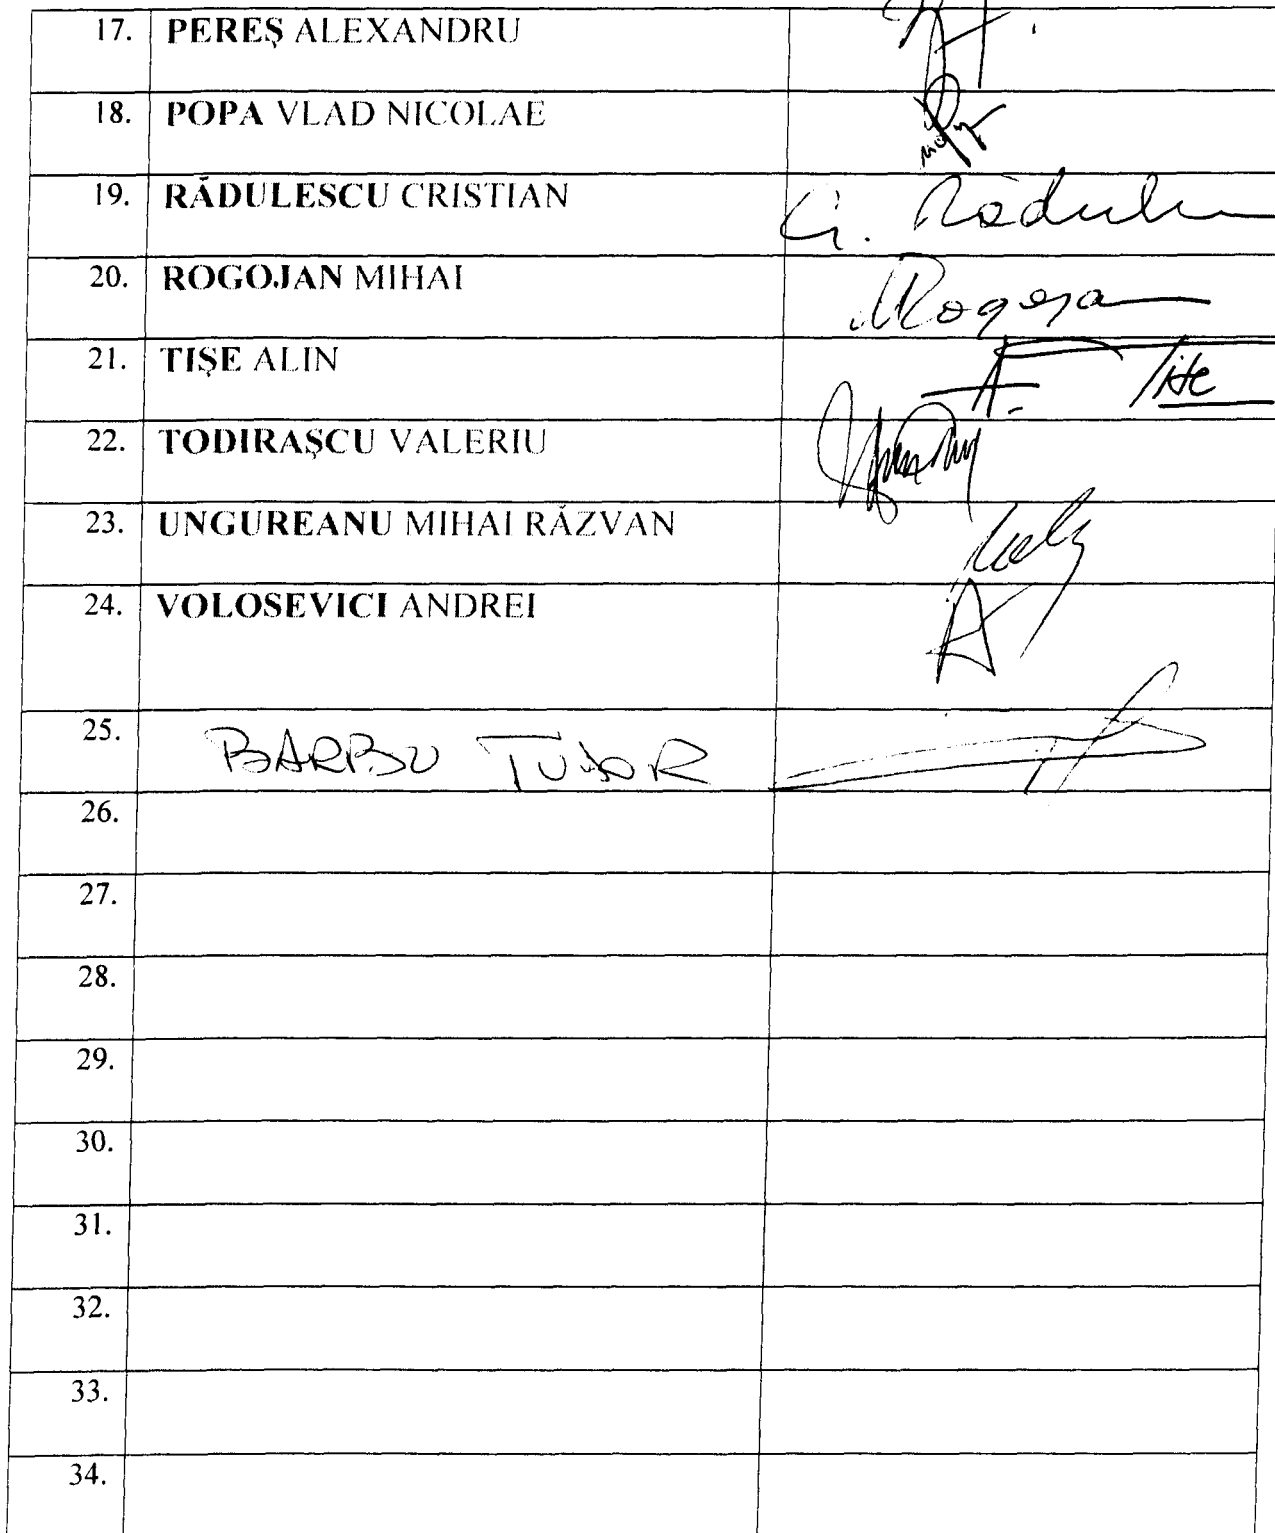 17. PEREȘ ALEXANDRU
18. POPA VLAD NICOLAE
19. RĂDULESCU CRISTIAN
20. ROGOJAN MIHAI
21. TIȘE ALIN
22. TODIRAȘCU VALERIU
23. UNGUREANU MIHAI RĂZVAN
24. VOLOSEVICI ANDREI
25. BARBU TUDOR
26.
27.
28.
29.
30.
31.
32.
33.
34.